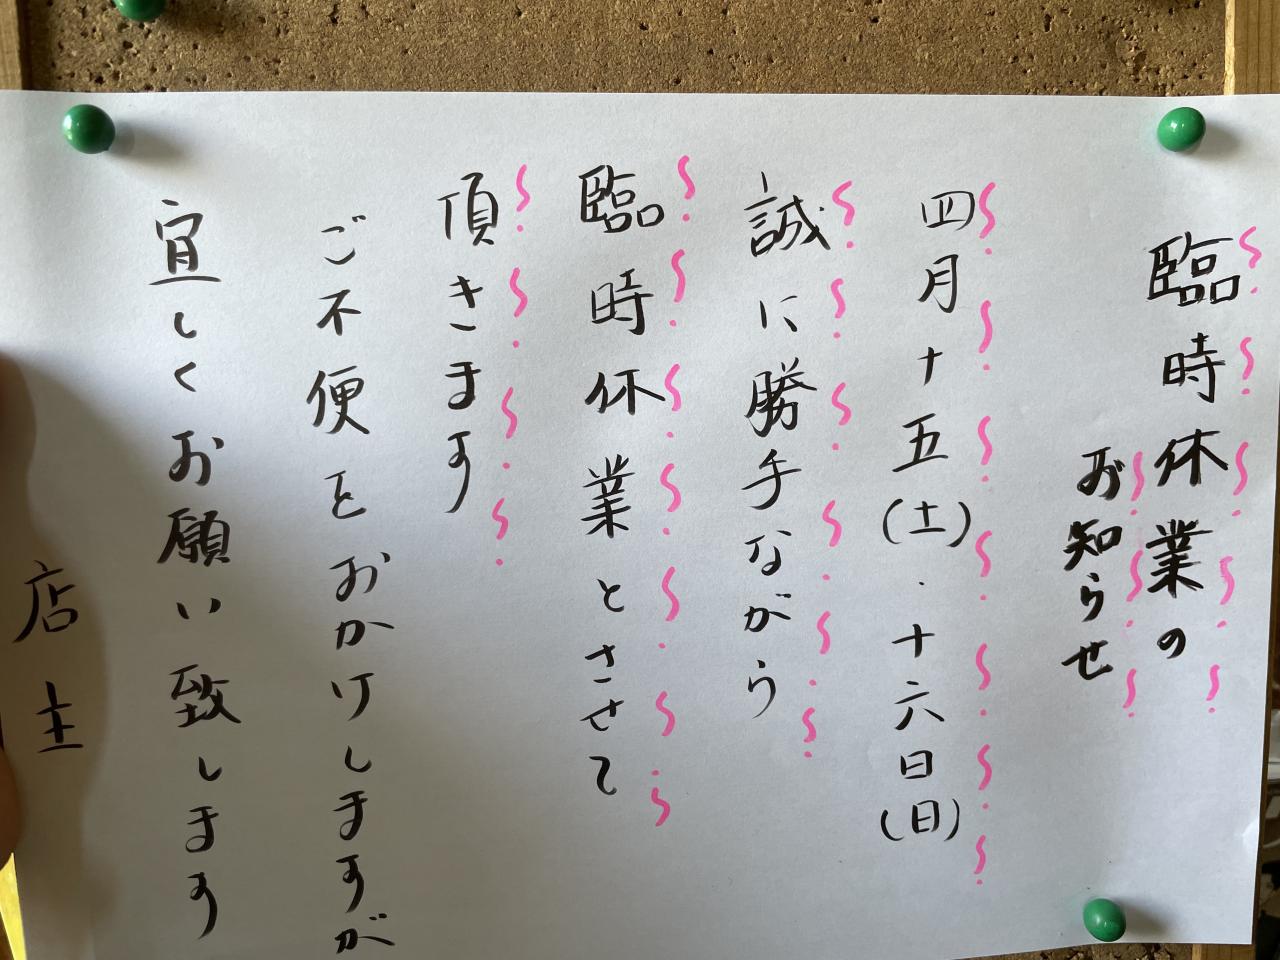 臨時休業の
お知らせ
四月十五(土)・十六日(日)
誠に勝手ながら
臨時休業とさせて
頂きます
ご不便をおかけしますが
宜しくお願い致します
店主